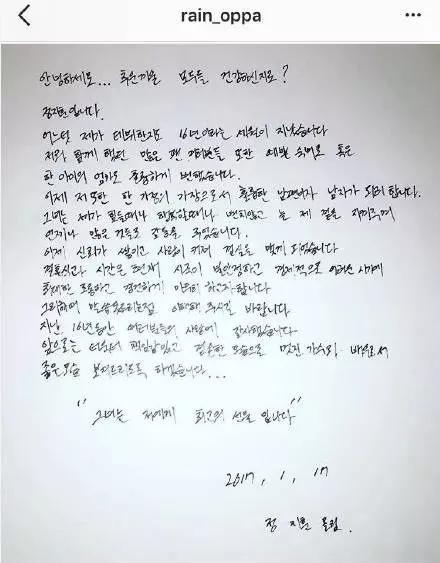 rain_oppa
안녕하세요... 추운겨울 모두들 건강하신지요?
정지훈입니다.
어느덧 제가 데뷔한지도 16년이라는 세월이 지났습니다
저와 함께 했던 많은 팬 여러분들 또한 예쁜 숙녀로 혹은
한 아이의 엄마로 훌륭하게 변했습니다.
이제 저 또한 한 가정의 가장으로서 훌륭한 남편이자 남자가 되려 합니다.
그녀는 제가 힘들때나 행복할때나 변치않고 늘 제 곁을 지켜주며
언제나 많은 것들로 감동을 주었습니다.
이제 신뢰가 쌓이고 사랑이 커져 결실을 맺게 되었습니다
결혼식과 시간은 현재 시국이 불안정하고 경제적으로 어려운 시기에
최대한 조용하고 경건하게 마무리 하고자 합니다
그리하여 말씀 못드리는점 이해해 주시길 바랍니다
지난 16년동안 여러분들의 사랑에 감사했습니다
앞으로는 더욱더 책임감있고 겸손한 모습으로 멋진 가수와 배우로서
좋은모습 보여드리도록 하겠습니다...
"그녀는 저에게 최고의 선물 입니다"
2017. 1. 17
정지훈 올림.